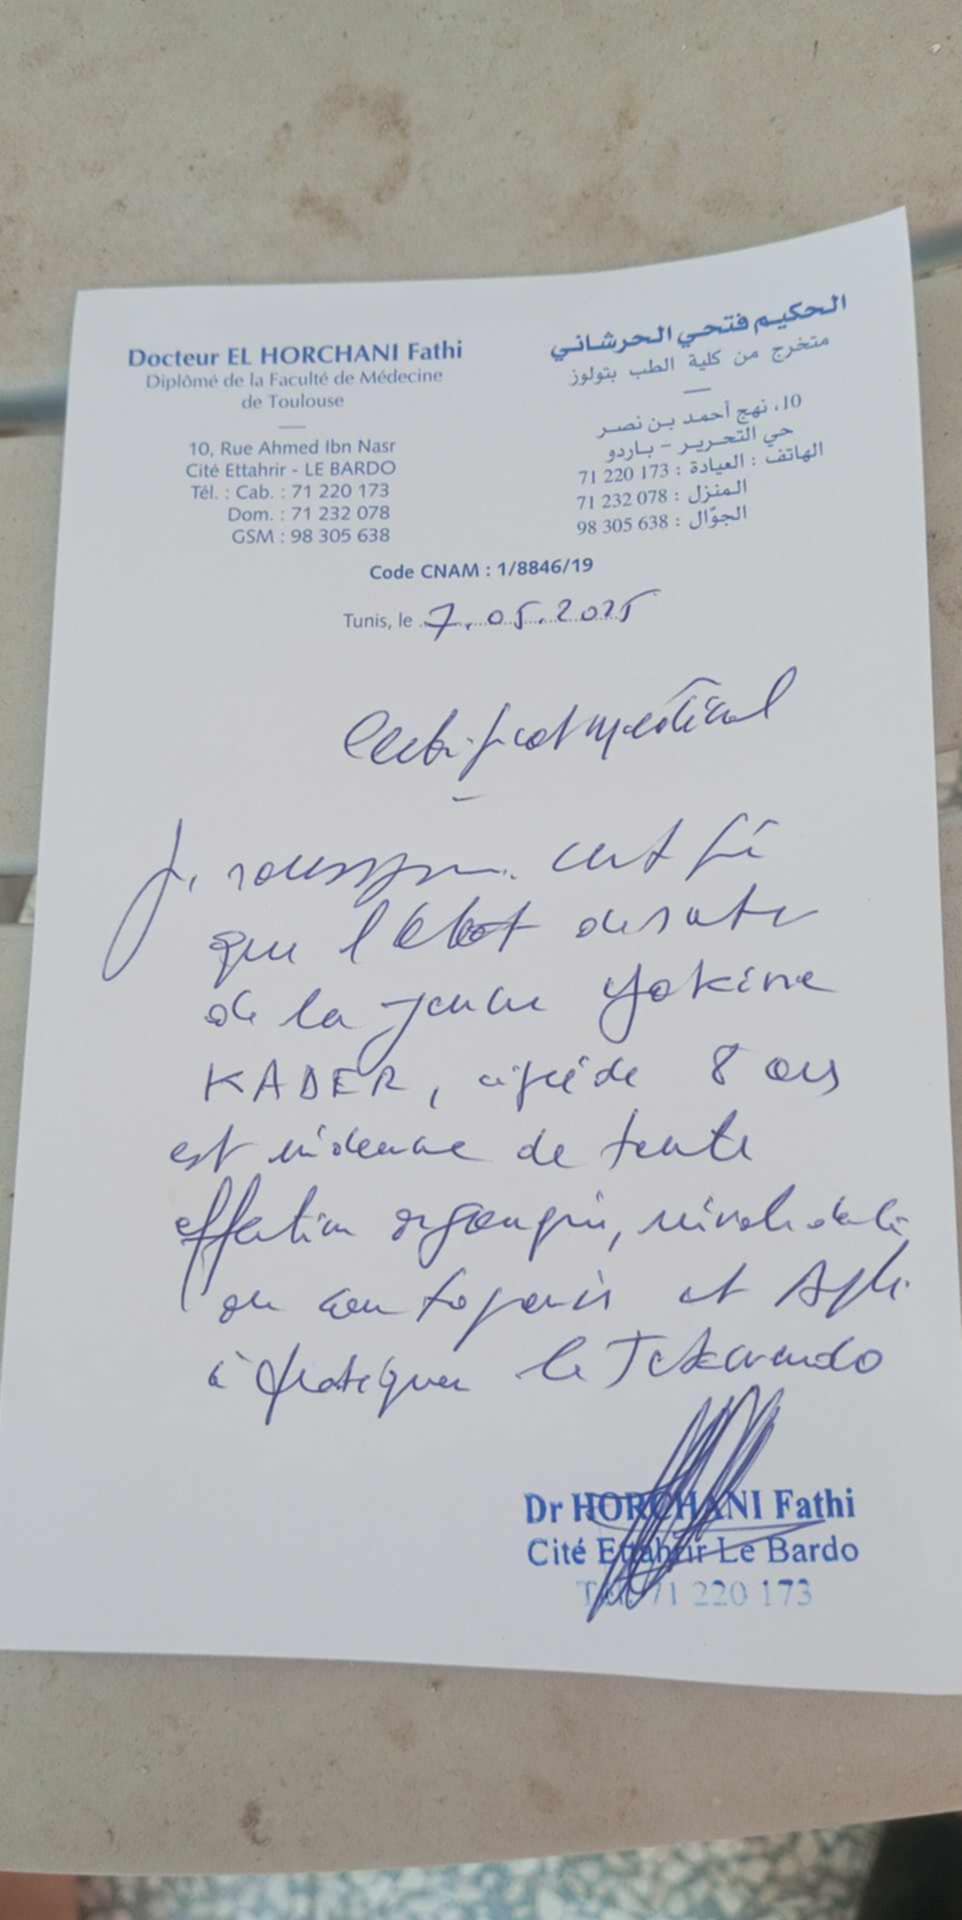 Docteur EL HORCHANI Fathi
Diplômé de la Faculté de Médecine
de Toulouse
10, Rue Ahmed Ibn Nasr
Cité Ettahrir - LE BARDO
Tél. : Cab. : 71 220 173
Dom. : 71 232 078
GSM : 98 305 638
الحكيم فتحي الحرشاني
متخرج من كلية الطب بتولوز
10، نهج أحمد بن نصر
حي التحرير - باردو
الهاتف : العيادة : 173 220 71
المنزل : 078 232 71
الجوّال : 638 305 98
Code CNAM : 1/8846/19
Tunis, le 7.05.2025
Certificat médical
Je soussigné certifie
que l'état de santé
de la jeune
KADER, âgée de 8 ans
est indemne de toute
affection organique,
ou contagieuse et Apte
à pratiquer le Taekwondo
Dr HORCHANI Fathi
Cité Ettahrir Le Bardo
Tél. 71 220 173